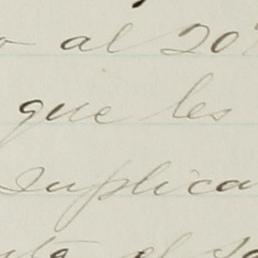 al 20
que les
suplica
el